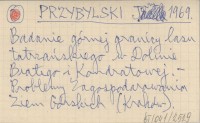 PRZYBYLSKI 1969.
Badanie górnej granicy lasu
tatrzańskiego w Dolinie
Białego i Kondratowej. -
Problemy Zagospodarowania
Ziem Górskich (Kraków).